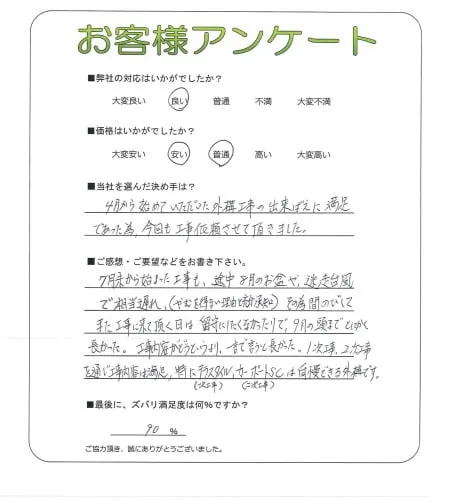 お客様アンケート
■弊社の対応はいかがでしたか?
大変良い 良い 普通 不満 大変不満
■価格はいかがでしたか?
大変安い 安い 普通 高い 大変高い
■当社を選んだ決め手は?
4月から始めていただいた外構工事の出来ばえに満足
であった為、今回も工事依頼させて頂きました。
■ご感想・ご要望などをお書き下さい。
7月末から始まった工事も、途中8月のお盆や、迷走台風
で相当遅れ、(やむを得ない理由と承知) その為間のびして
また工事に来て頂く日は留守にしたくなかったりで、9月の頭までとにかく
長かった。工事内容がどうというより、一言で言うと長かった。1次工事、2次工事
を通じ工事内容は満足、特にテラスタイル、カーポートSCは自慢できる外構です。
(一次工事) (二次工事)
■最後に、ズバリ満足度は何%ですか?
90 %
ご協力頂き、誠にありがとうございました。